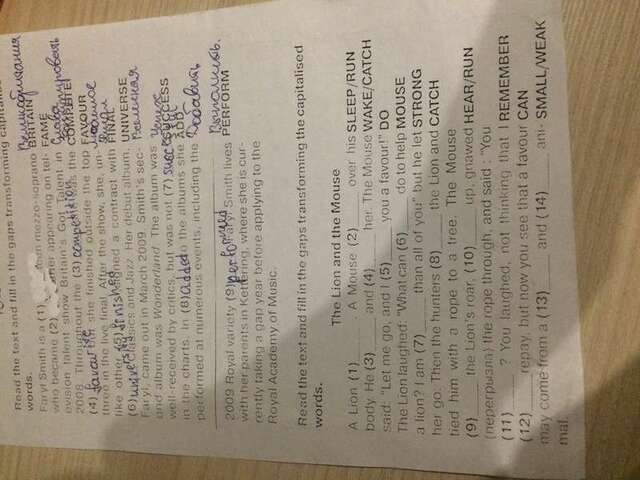 Read the text and fill in the gaps transforming the capitalised
words.
Faryl Smith is a (1) teen mezzo-soprano BRITAIN Великобритания
who became (2) after appearing on tel- FAME
evision talent show Britain's Got Talent in Слава
2008. Throughout the (3) competition was the COMPLETE
(4) favourite she finished outside the top FAVOUR
three in the live final. After the show, she, un- любимое
like other (5) finished signed a contract with FINAL
(6) university Classics and Jazz. Her debut album, UNIVERSE
Faryl, came out in March 2009. Smith's sec- Вселеная
ond album was Wonderland. The album was Успех
well-received by critics, but was not (7) success SUCCESS
in the charts. In (8) added to the albums she ADD
performed at numerous events, including the Добавить
2009 Royal variety (9) performed Faryl Smith lives PERFORM Выполнить.
with her parents in Kettering, where she is cur-
rently taking a gap year before applying to the
Royal Academy of Music.
Read the text and fill in the gaps transforming the capitalised
words.
The Lion and the Mouse
A Lion (1)_____ . A Mouse (2)_____ over his SLEEP/RUN
body. He (3)____ and (4)____ her. The Mouse WAKE/CATCH
said: "Let me go, and I (5)____ you a favour!" DO
The Lion laughed: "What can (6)____ do to help MOUSE
a lion? I am (7)____ than all of you" but he let STRONG
her go. Then the hunters (8)____ the Lion and CATCH
tied him with a rope to a tree. The Mouse
(9)____ the Lion's roar, (10)____ up, gnawed HEAR/RUN
(перегрызла) the rope through, and said : "You
(11)____ ? You laughed, not thinking that I REMEMBER
(12)____ repay, but now you see that a favour CAN
may come from a (13)____ and (14)____ ani- SMALL/WEAK
mal.